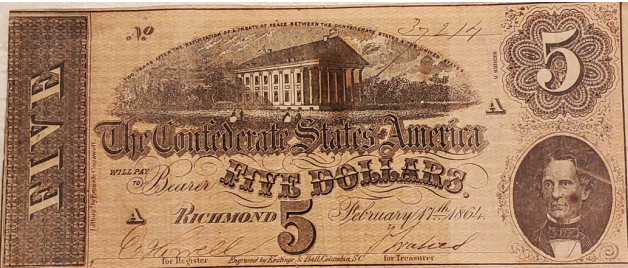 No
37214
TWO YEARS AFTER THE RATIFICATION OF A TREATY OF PEACE BETWEEN THE CONFEDERATE STATES & THE UNITED STATES
5
FIVE
A
The Confederate States of America
WILL PAY
TO Bearer
FIVE DOLLARS.
A
RICHMOND 5 February 17th 1864
for Register
Engraved by Keatinge & Ball, Columbia, S.C
for Treasurer